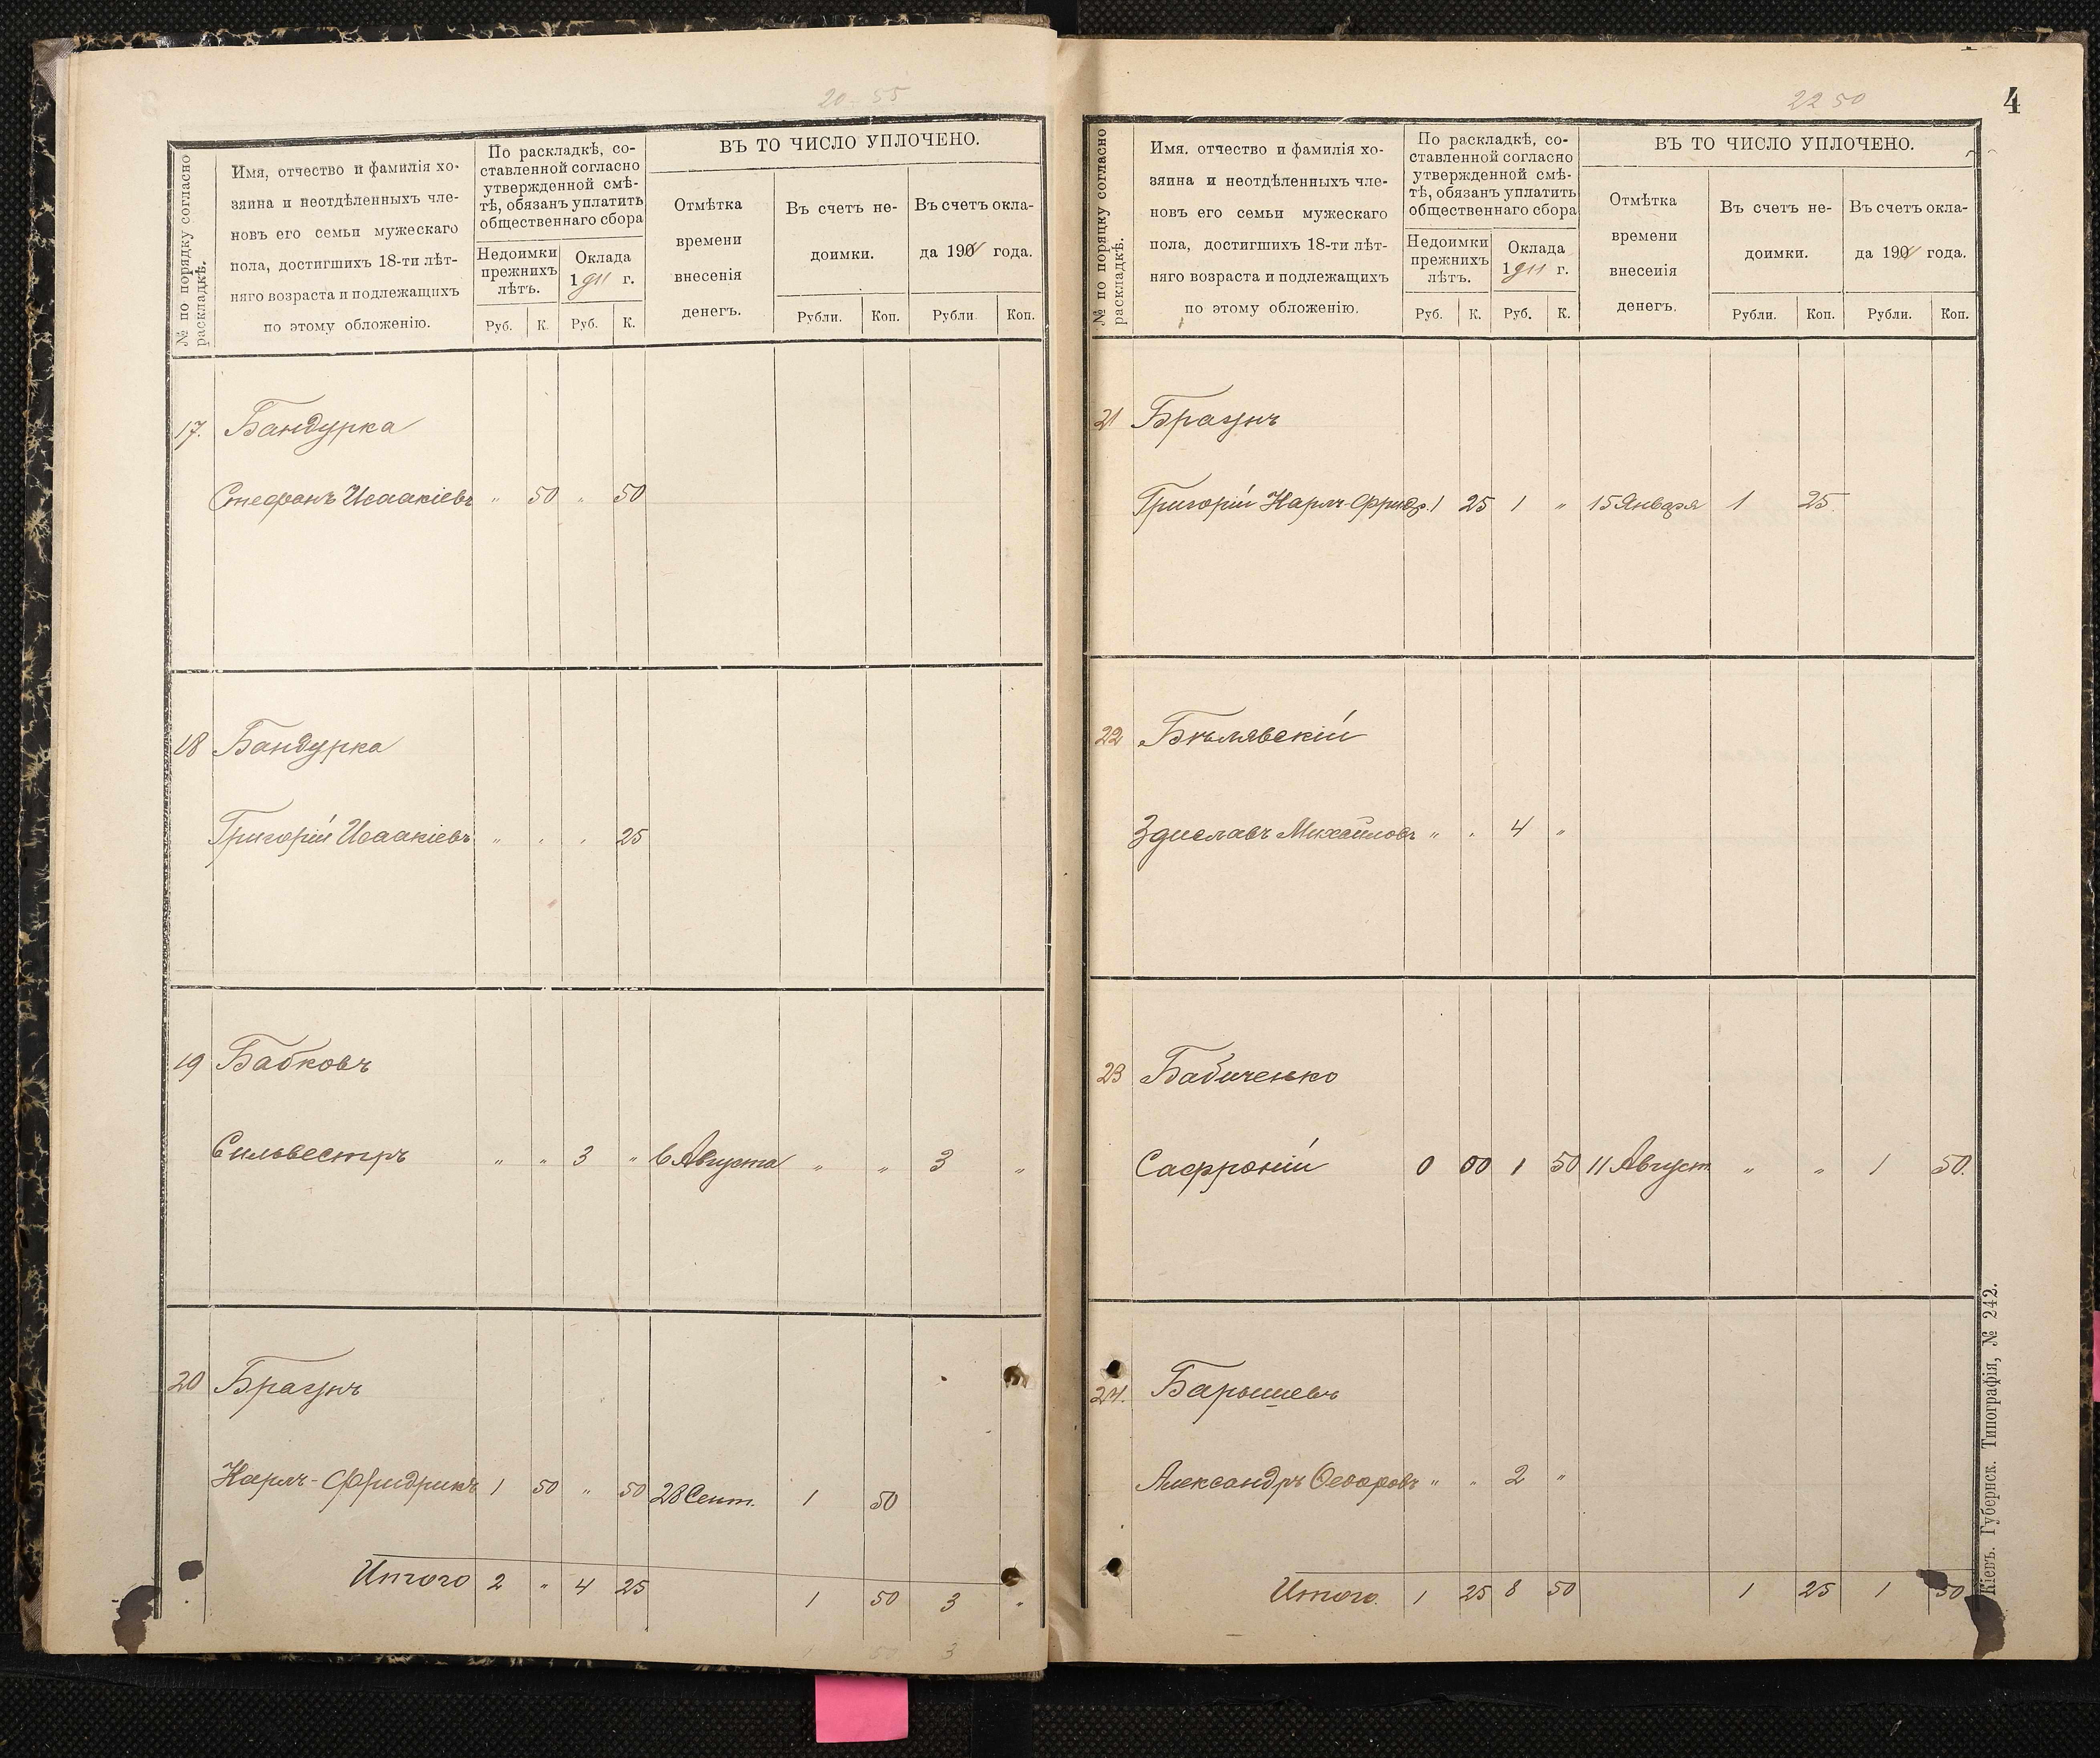 20-55
№ по порядку согласно раскладкѣ.
Имя, отчество и фамилія хо-
зяина и неотдѣленныхъ чле-
новъ его семьи мужескаго
пола, достигшихъ 18-ти лѣт-
няго возраста и подлежащихъ
по этому обложенію.
По раскладкѣ, со-
ставленной согласно
утвержденной смѣ-
тѣ, обязанъ уплатить
общественнаго сбора
Недоимки
прежнихъ
лѣтъ.
Оклада
1911 г.
Руб. К. Руб. К.
ВЪ ТО ЧИСЛО УПЛОЧЕНО.
Отмѣтка
времени
внесенія
денегъ.
Въ счетъ не-
доимки.
Въ счетъ окла-
да 190 года.
Рубли. Коп. Рубли. Коп.
17. Бандурка
Стефанъ Исаакіевъ " 50 " 50
18 Бандурка
Григорій Исаакіевъ " " " 25
19 Бабковъ
Сильвестръ " " 3 " 6 Августа " " 3 "
20 Браунъ
Карлъ-Фридрихъ 1 50 " 50 28 Сент. 1 50
Итого 2 " 4 25 1 50 3 "
1 50 3
22 50
4
№ по порядку согласно раскладкѣ.
Имя, отчество и фамилія хо-
зяина и неотдѣленныхъ чле-
новъ его семьи мужескаго
пола, достигшихъ 18-ти лѣт-
няго возраста и подлежащихъ
по этому обложенію.
По раскладкѣ, со-
ставленной согласно
утвержденной смѣ-
тѣ, обязанъ уплатить
общественнаго сбора
Недоимки
прежнихъ
лѣтъ.
Оклада
1911 г.
Руб. К. Руб. К.
ВЪ ТО ЧИСЛО УПЛОЧЕНО.
Отмѣтка
времени
внесенія
денегъ.
Въ счетъ не-
доимки.
Въ счетъ окла-
да 190 года.
Рубли. Коп. Рубли. Коп.
21 Браунъ
Григорій Карлъ-Фридр. 1 25 1 " 15 Января 1 25
22 Бѣлявскій
Здиславъ Михайловъ " " 4 "
23 Бабиченко
Сафроній 0 00 1 50 11 Август. " " 1 50.
24. Барышевъ
Александръ Федоровъ " " 2 "
Итого. 1 25 8 50 1 25 1 50
Кіевъ. Губернск. Типографія, № 242.